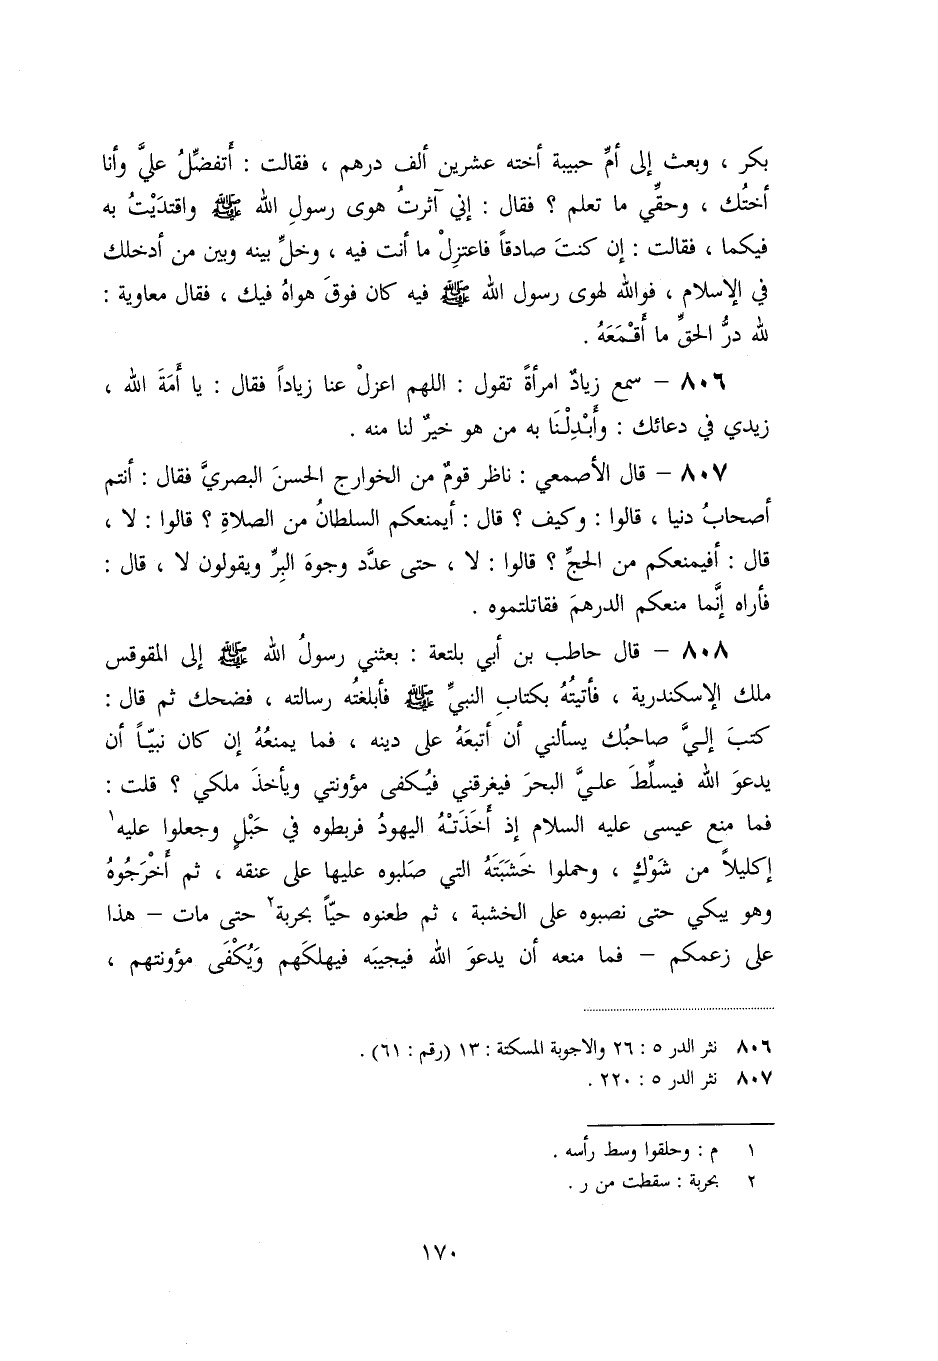 بكر ، وبعث إلى أمِّ حبيبة أخته عشرين ألف درهم ، فقالت : أَتفضِّلُ عليَّ وأنا
أختُك ، وحقِّي ما تعلم ؟ فقال : إني آثرتُ هوى رسولِ الله ﷺ واقتدَيْتُ به
فيكما ، فقالت : إن كنتَ صادقاً فاعتزِلْ ما أنت فيه ، وخلِّ بينه وبين من أدخلك
في الإسلام ، فوالله لهوى رسول الله ﷺ فيه كان فوقَ هواهُ فيك ، فقال معاوية :
لله درُّ الحقِّ ما أَقْمَعَهُ .
٨٠٦ – سمع زيادٌ امرأةً تقول : اللهم اعزلْ عنا زياداً فقال : يا أَمَةَ الله ،
زيدي في دعائك : وأَبْدِلْنَا به من هو خيرٌ لنا منه .
٨٠٧ – قال الأصمعي : ناظر قومٌ من الخوارج الحسنَ البصريَّ فقال : أنتم
أصحابُ دنيا ، قالوا : وكيف ؟ قال : أيمنعكم السلطانُ من الصلاةِ ؟ قالوا : لا ،
قال : أفيمنعكم من الحجِّ ؟ قالوا : لا ، حتى عدَّد وجوهَ البِرِّ ويقولون لا ، قال :
فأراه إنَّما منعكم الدرهمَ فقاتلتموه .
٨٠٨ – قال حاطب بن أبي بلتعة : بعثني رسولُ الله ﷺ إلى المقوقس
ملك الإسكندرية ، فأتيتُهُ بكتابِ النبيِّ ﷺ فأبلغتُه رسالته ، فضحك ثم قال :
كتبَ إليَّ صاحبُك يسألني أن أتبعَهُ على دينه ، فما يمنعُهُ إن كان نبيّاً أن
يدعوَ الله فيسلِّطَ عليَّ البحرَ فيغرقني فيُكفى مؤونتي ويأخذَ ملكي ؟ قلت :
فما منع عيسى عليه السلام إذ أَخَذَتْهُ اليهودُ فربطوه في حَبْلٍ وجعلوا عليه١
إكليلاً من شَوْكٍ ، وحملوا خَشَبَتَهُ التي صَلبوه عليها على عنقه ، ثم أَخْرَجُوهُ
وهو يبكي حتى نصبوه على الخشبة ، ثم طعنوه حيّاً بحربة٢ حتى مات – هذا
على زعمكم – فما منعه أن يدعوَ الله فيجيبَه فيهلكَهم وَيُكْفَى مؤونتهم ،
٨٠٦ نثر الدر ٥ : ٢٦ والاجوبة المسكتة : ١٣ (رقم : ٦١) .
٨٠٧ نثر الدر ٥ : ٢٢٠ .
١ م : وحلقوا وسط رأسه .
٢ بحربة : سقطت من ر .
١٧٠